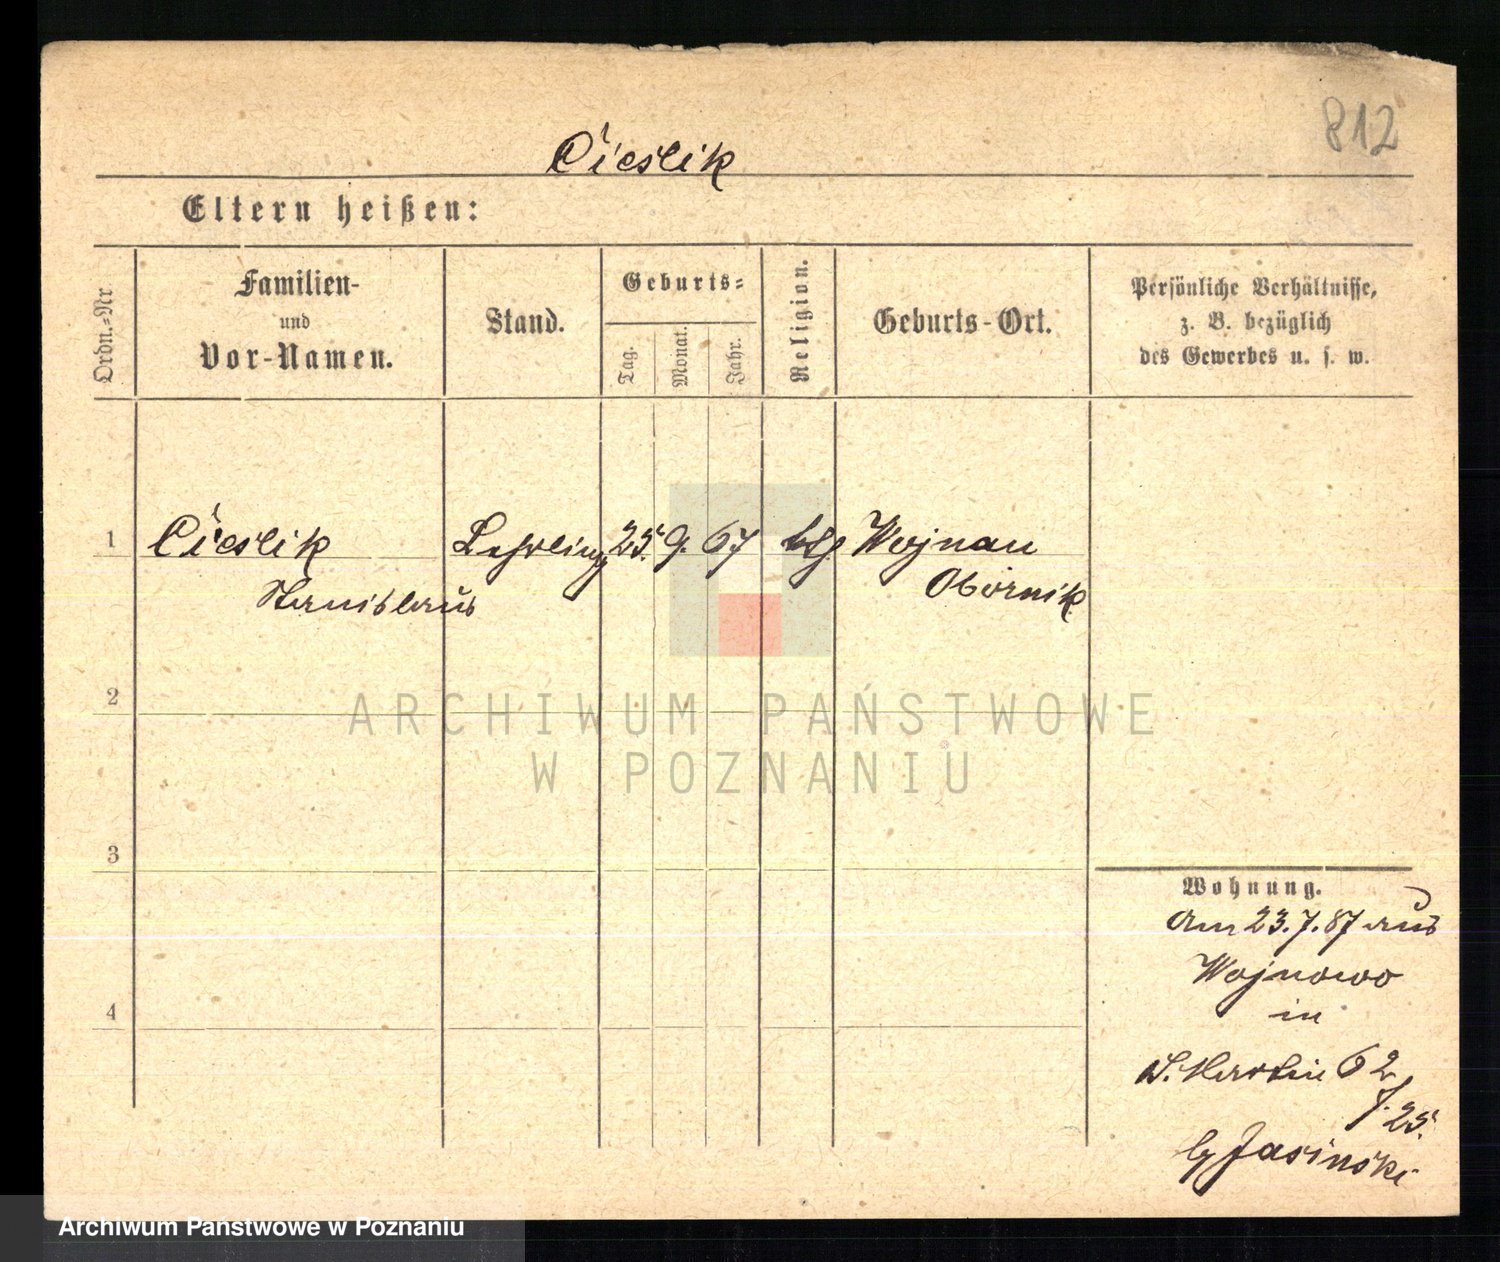 812
Cieslik
Eltern heißen:
Ordn.-Nr
Familien-
und
Vor-Namen.
Stand.
Geburts-
Tag.
Monat.
Jahr.
Religion.
Geburts-Ort.
Persönliche Verhältnisse,
z. B. bezüglich
des Gewerbes u. s. w.
1 Cieslik Lehrling 25. 9. 67 kth Wojnau
Stanislaus Obornik
2
3
4
Wohnung.
Am 23.7.87 aus
Wojnowo
in
St. Martin 62
25.
Jasinski
ARCHIWUM PAŃSTWOWE
W POZNANIU
Archiwum Państwowe w Poznaniu